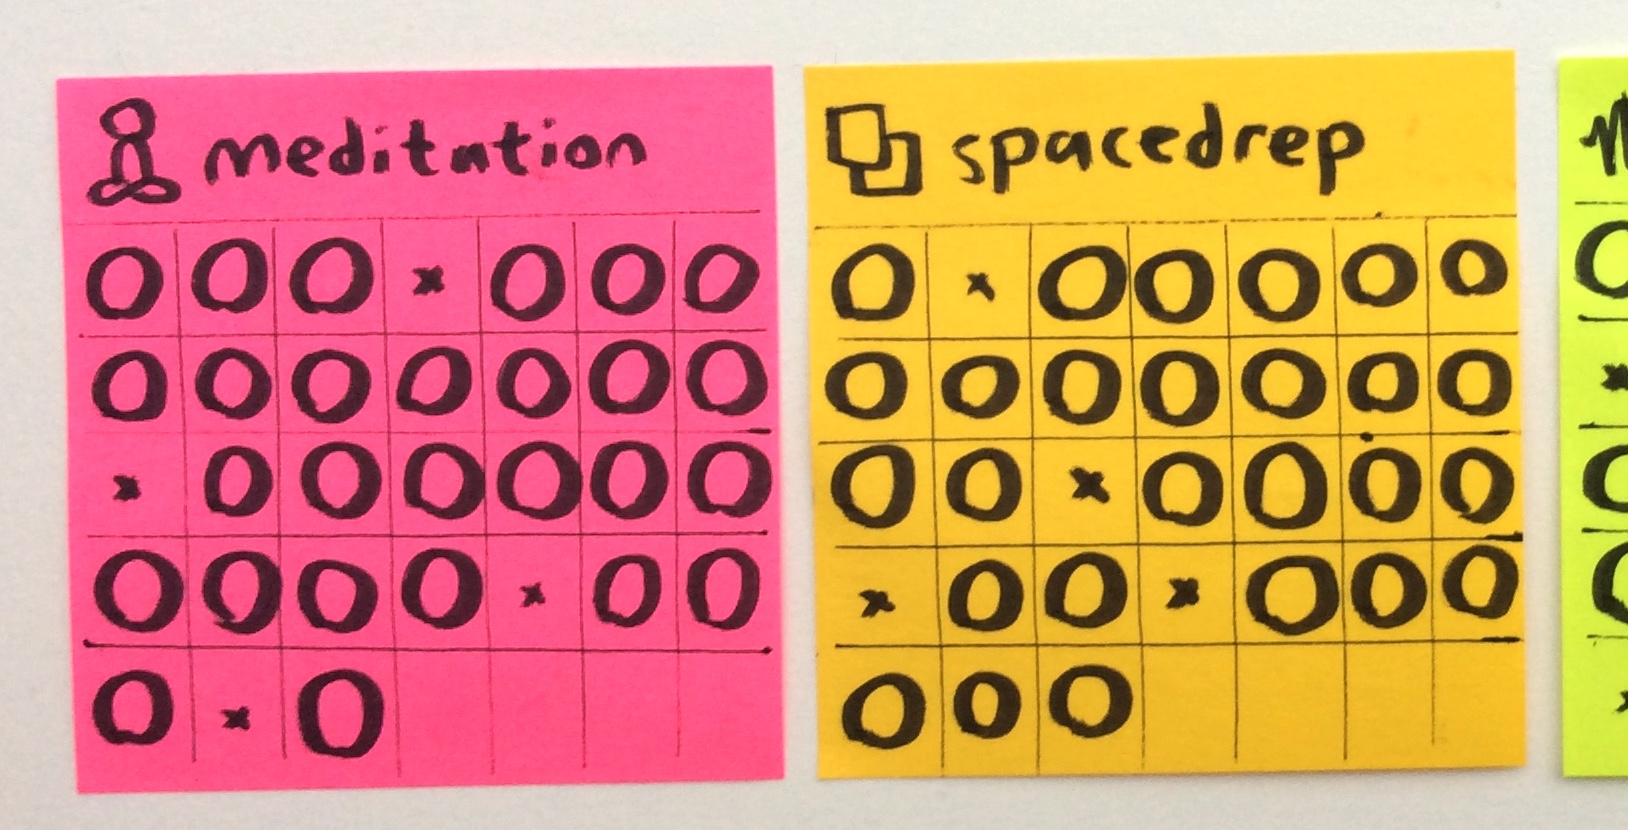 meditation
O O O x O O O
O O O O O O O
x O O O O O O
O O O O x O O
O x O
spacedrep
O x O O O O O
O O O O O O O
O O x O O O O
x O O x O O O
O O O